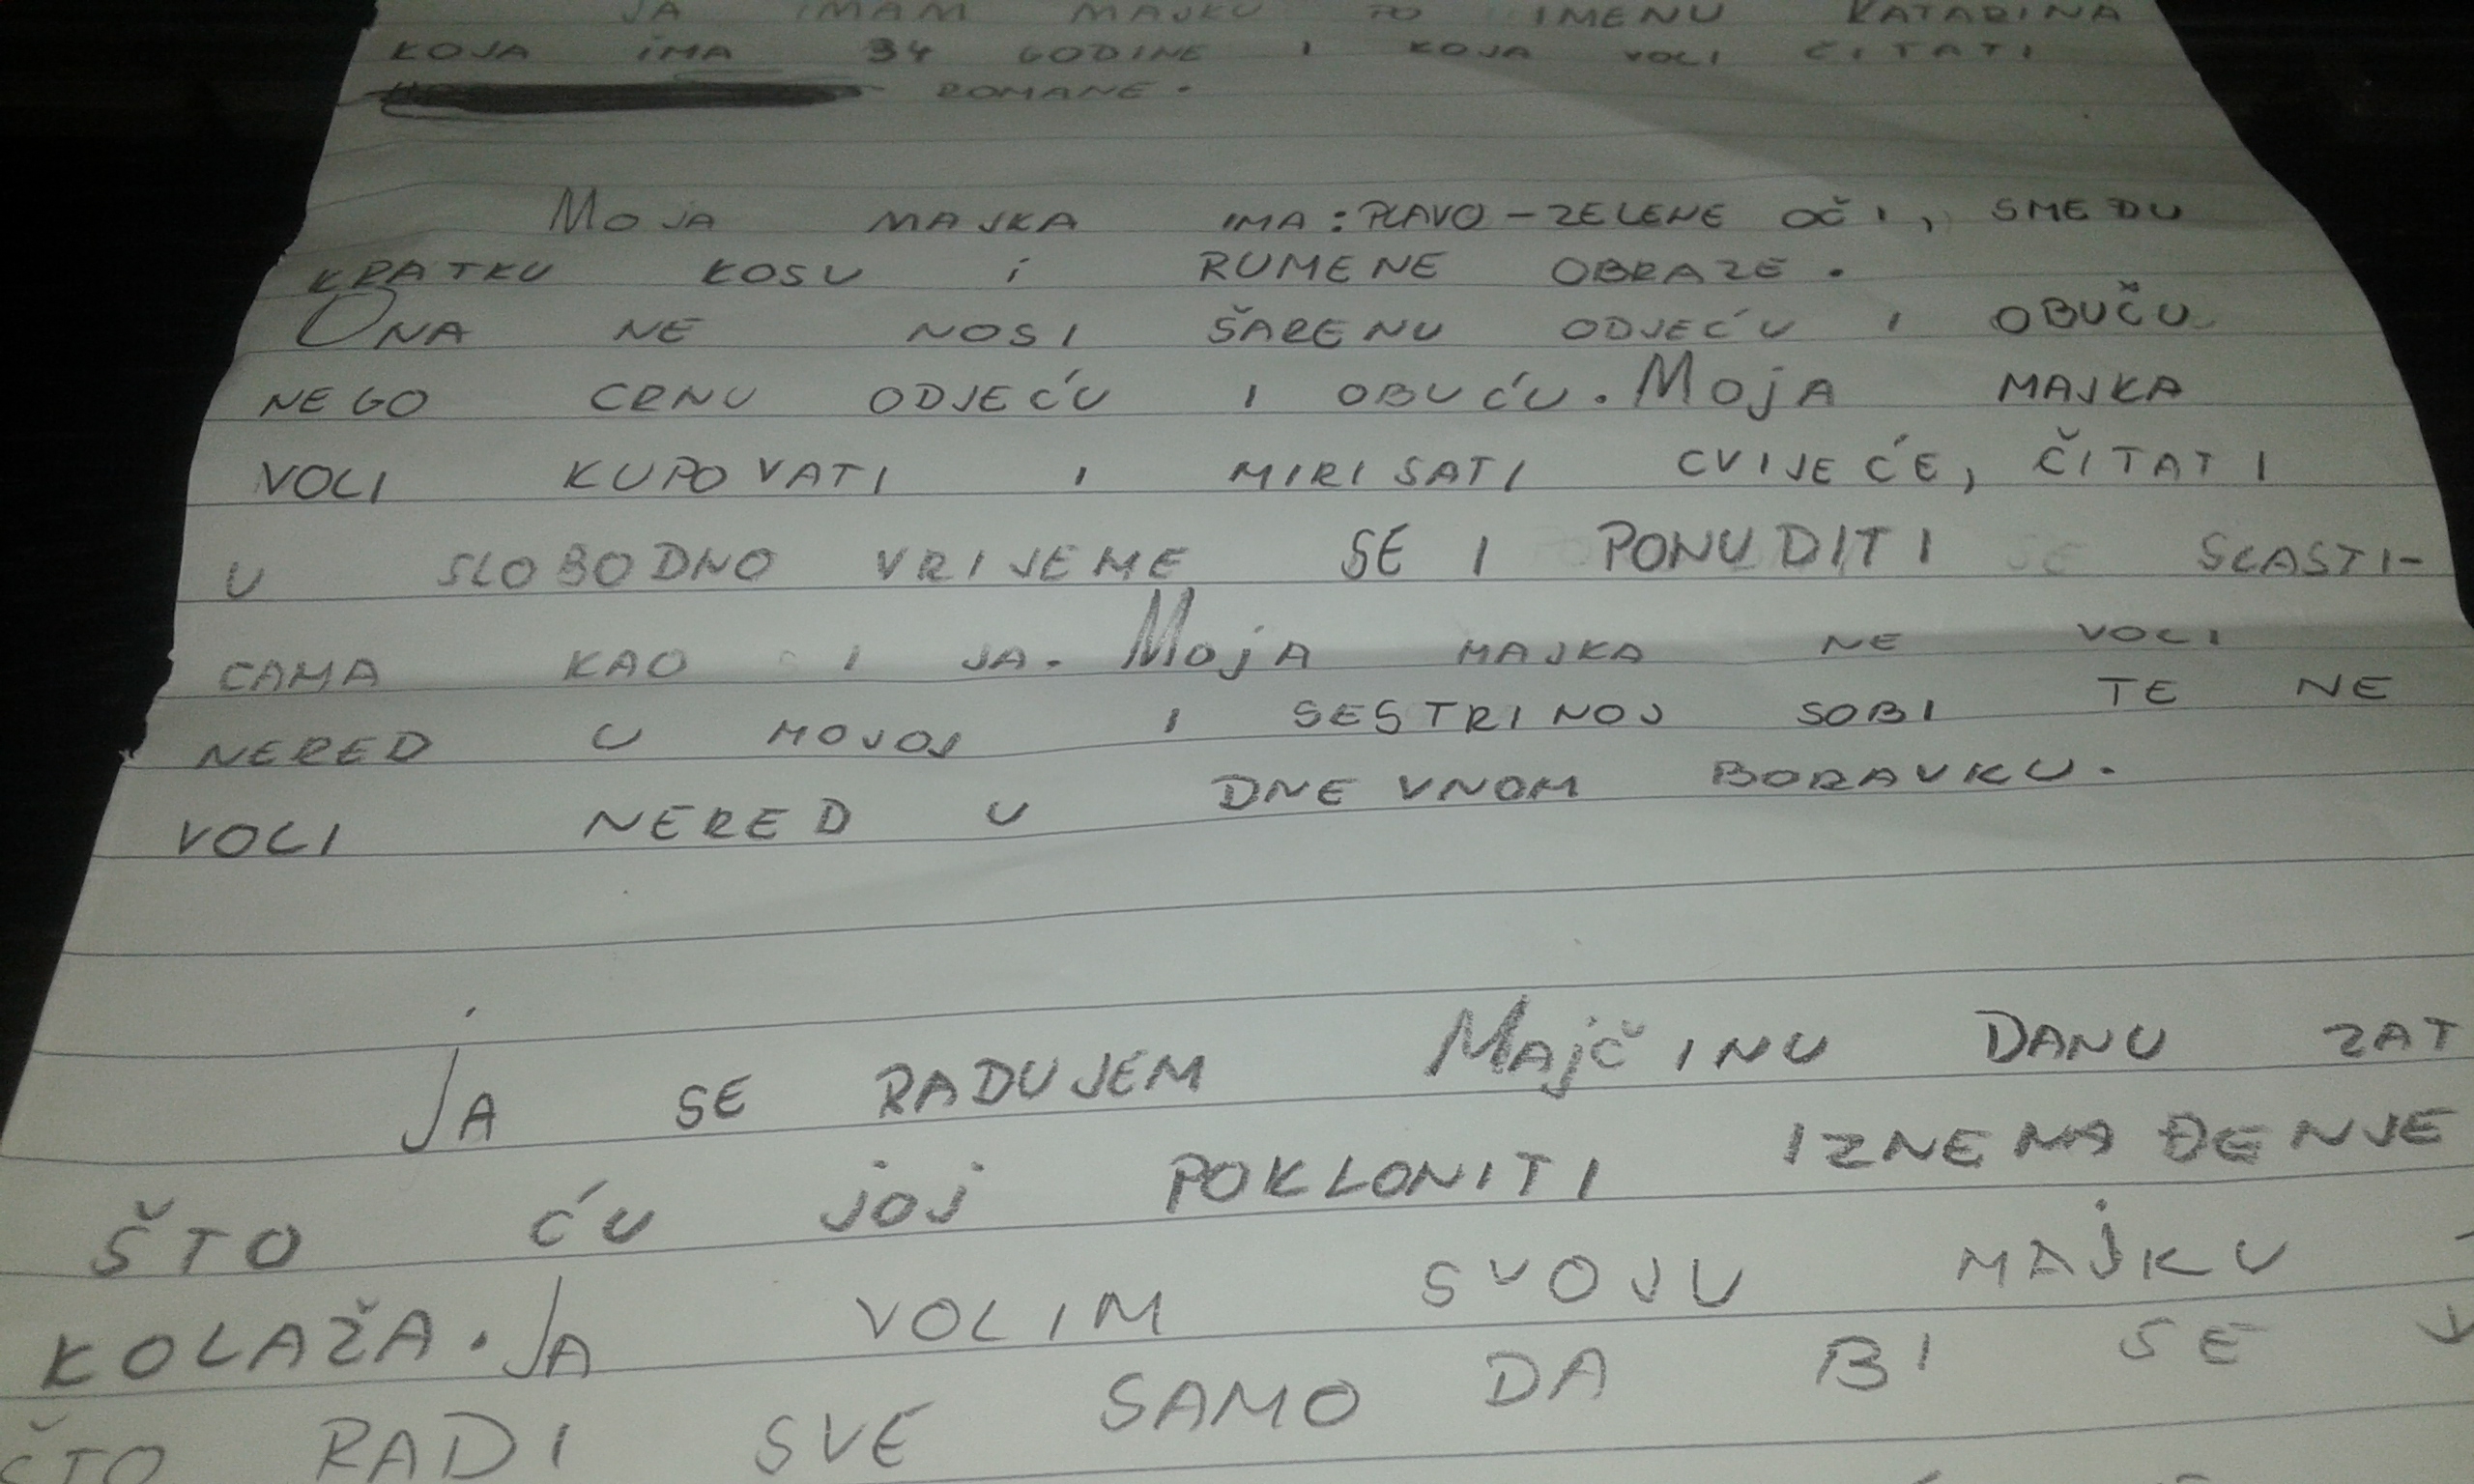 JA IMAM MAJKU PO IMENU KATARINA
KOJA IMA 34 GODINE I KOJA VOLI ČITATI
ROMANE.
MOJA MAJKA IMA: PLAVO-ZELENE OČI, SMEĐU
KRATKU KOSU I RUMENE OBRAZE.
ONA NE NOSI ŠARENU ODJEĆU I OBUČU
NEGO CRNU ODJEĆU I OBUĆU. MOJA MAJKA
VOLI KUPOVATI I MIRISATI CVIJEĆE, ČITATI
U SLOBODNO VRIJEME SE I PONUDITI SLASTI-
CAMA KAO I JA. MOJA MAJKA NE VOLI
NERED U MOJOJ I SESTRINOJ SOBI TE NE
VOLI NERED U DNEVNOM BORAVKU.
JA SE RADUJEM MAJČINU DANU ZAT
ŠTO ĆU JOJ POKLONITI IZNENAĐENJE
KOLAŽA. JA VOLIM SVOJU MAJKU
ŠTO RADI SVE SAMO DA BI SE